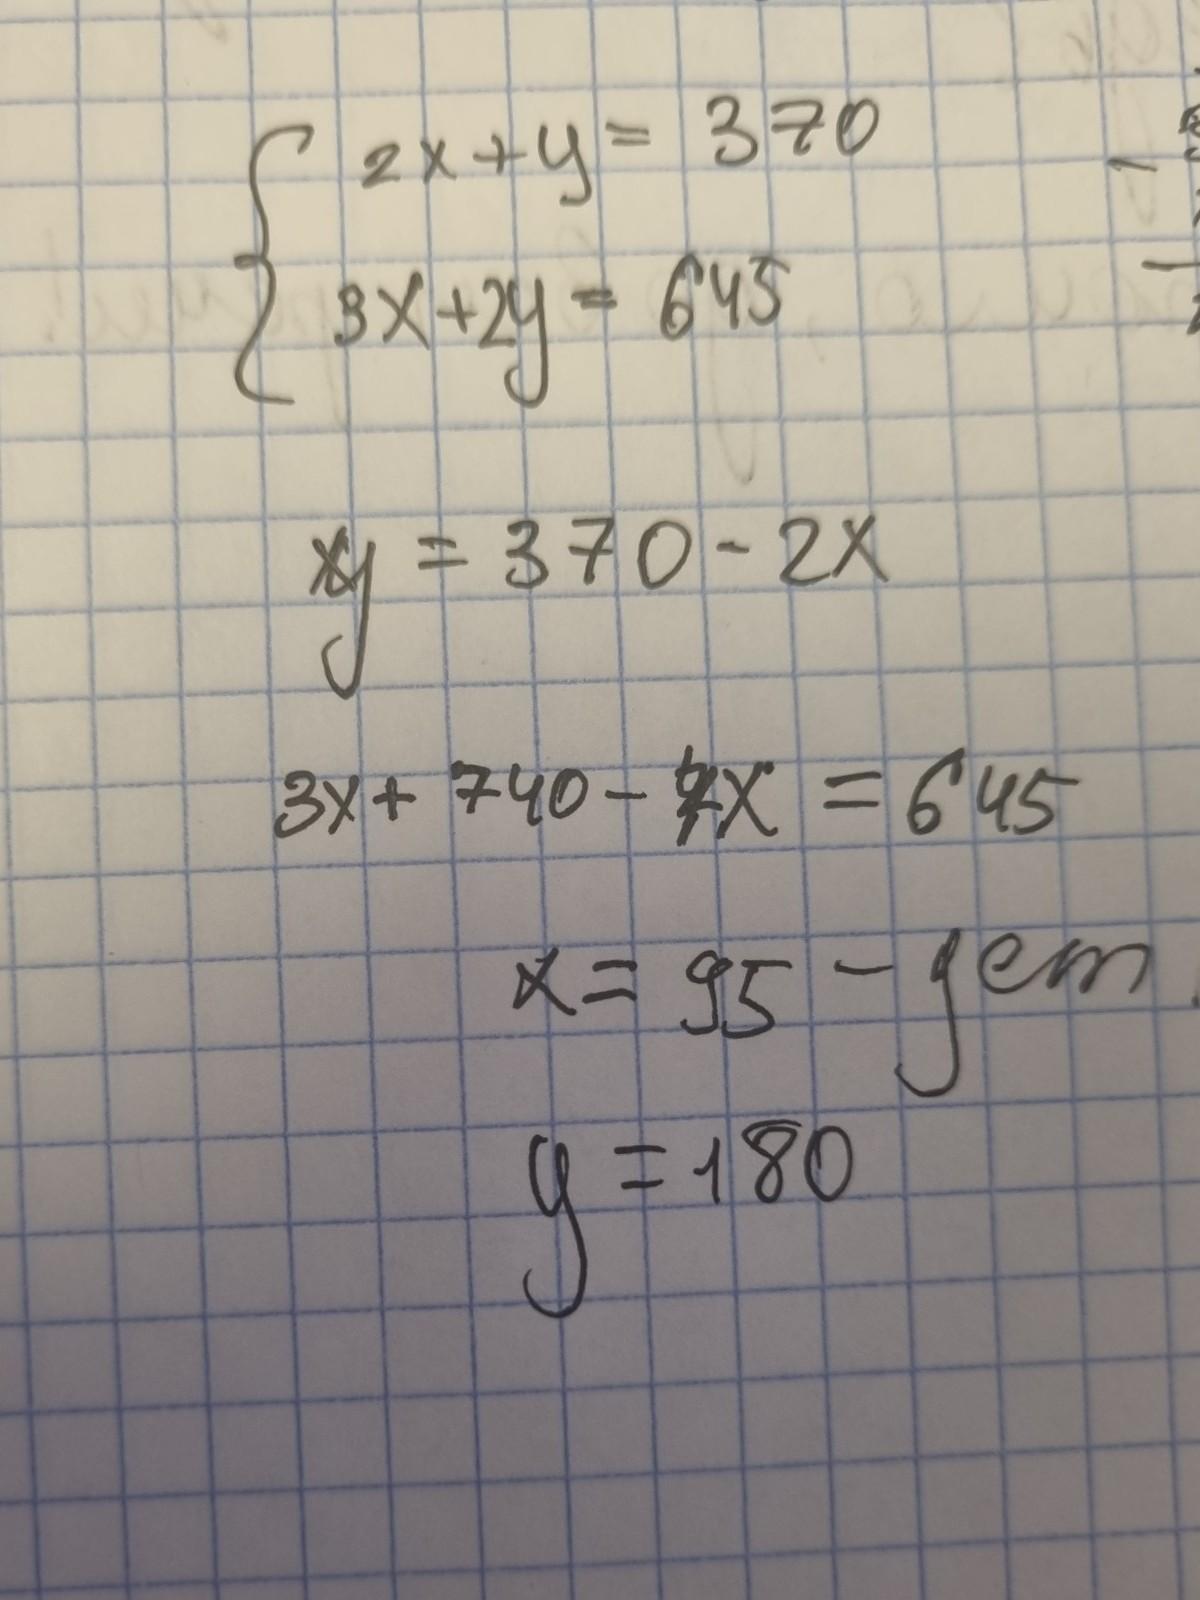 2x+y= 370
3x+2y= 645
y = 370-2x
3x+ 740-4x = 645
x= 95 - дет
y =180